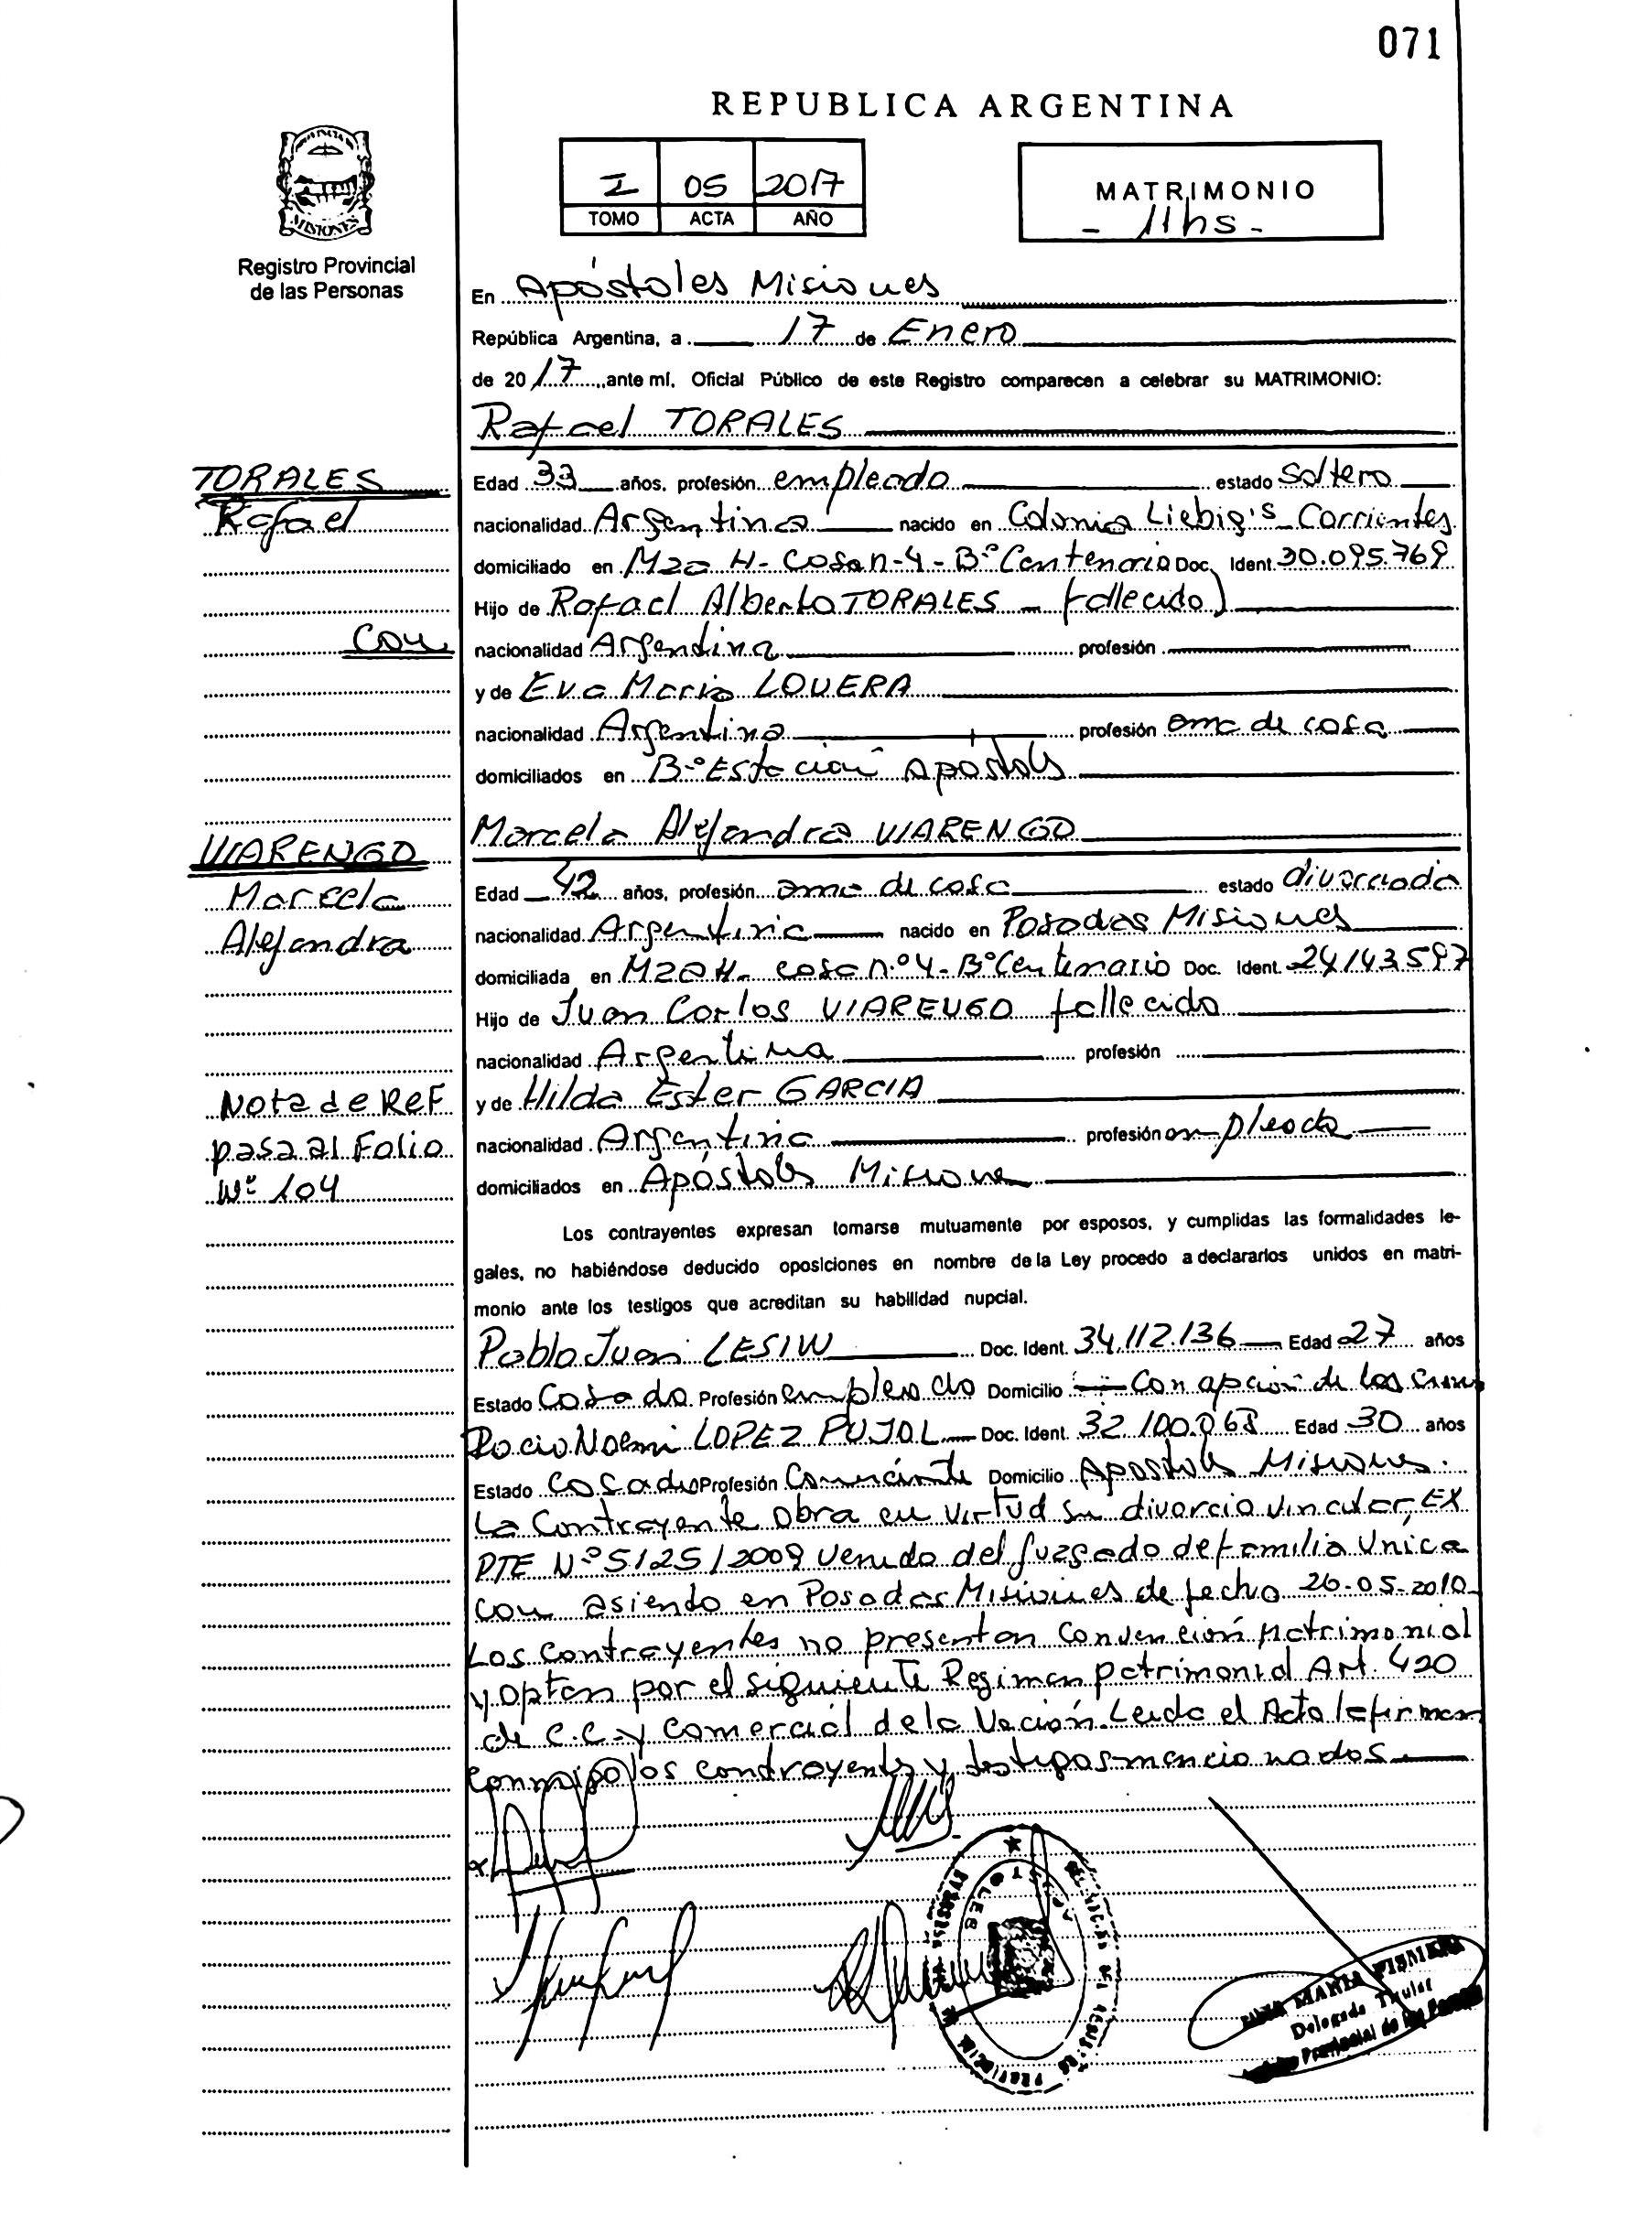 071
REPUBLICA ARGENTINA
I 05 2017
TOMO ACTA AÑO
MATRIMONIO
- 11hs -
MISIONES
Registro Provincial
de las Personas
En Apóstoles Misiones
República Argentina, a 17 de Enero
de 2017, ante mí, Oficial Público de este Registro comparecen a celebrar su MATRIMONIO:
Rafael TORALES
TORALES
Rafael
con
Edad 33 años, profesión empleado estado soltero
nacionalidad Argentina nacido en Colonia Liebig's Corrientes
domiciliado en Mza H- Casa n-4- Bº Centenario Doc. Ident. 30.095.769
Hijo de Rafael Alberto TORALES - fallecido)
nacionalidad Argentina profesión
y de Eva Maria LOVERA
nacionalidad Argentina profesión ama de casa
domiciliados en Bº Estación Apóstoles
Marcela Alejandra VIARENGO
VIARENGO
Marcela
Alejandra
Edad 42 años, profesión ama de casa estado divorciada
nacionalidad Argentina nacido en Posadas Misiones
domiciliada en Mza H- casa nº 4- Bº Centenario Doc. Ident. 24143597
Hijo de Juan Carlos VIARENGO fallecido
nacionalidad Argentina profesión
y de Hilda Ester GARCIA
nacionalidad Argentina profesión empleada
domiciliados en Apóstoles Misiones
Nota de Ref
pasa al Folio
Nº 104
Los contrayentes expresan tomarse mutuamente por esposos, y cumplidas las formalidades le-
gales, no habiéndose deducido oposiciones en nombre de la Ley procedo a declararlos unidos en matri-
monio ante los testigos que acreditan su habilidad nupcial.
Pablo Juan LESIW Doc. Ident. 34.112.136 Edad 27 años
Estado Casado Profesión empleado Domicilio
Rocio Noemi LOPEZ PUJOL Doc. Ident. 32.100.068 Edad 30 años
Estado Casada Profesión Comerciante Domicilio Apóstoles Misiones.
La Contrayente obra en virtud su divorcio vincular, EX
PTE Nº 5125/2009 venido del juzgado de familia Unica
con asiendo en Posadas Misiones de fecha 26-05-2010
Los Contrayentes no presentan Convención Matrimonial
y optan por el siguiente Regimen patrimonial Art. 420
de C.C. y Comercial de la Nación. Leida el Acta la firman
conmigo los contrayentes y testigos mencionados
MARIA
Delegada Titular
Provincial de las Personas